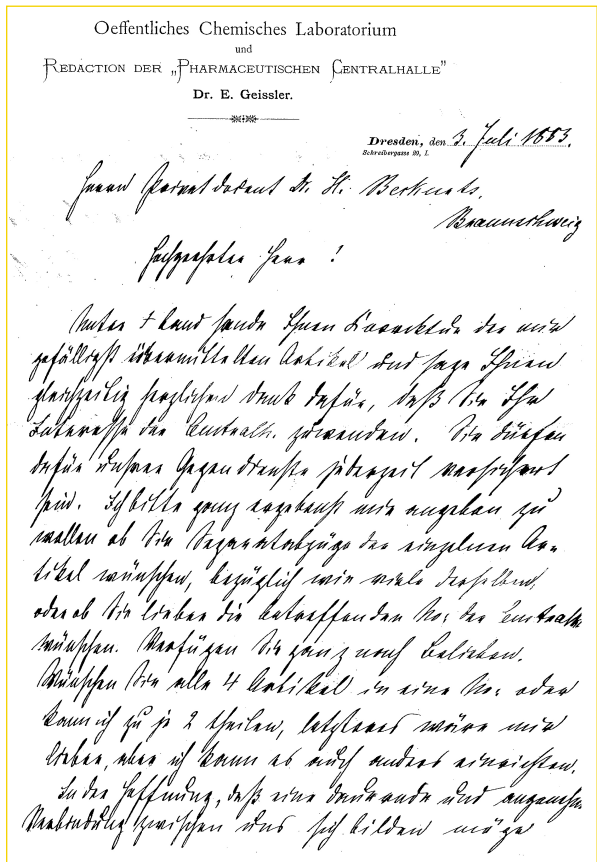 Oeffentliches Chemisches Laboratorium
und
REDACTION DER „PHARMACEUTISCHEN CENTRALHALLE"
Dr. E. Geissler.
Dresden, den 3. Juli 1883.
Schreibergasse 20, I.
Herrn Privatdocent Dr. H. Beckurts.
Braunschweig
Hochgeehrter Herr !
Unter + band sende Ihnen Correctur der mir
gefälligst übermittelten Artikel und sage Ihnen
gleichzeitig herzlichen Dank dafür, daß Sie Ihr
Interesse der Centralh. zuwenden. Sie dürfen
dafür unsrer Gegendienste jederzeit versichert
sein. Ich bitte ganz ergebenst mir angeben zu
wollen ob Sie Separatabzüge der einzelnen Ar-
tikel wünschen, bezüglich wie viele derselben,
oder ob Sie lieber die betreffenden No: der Centralh.
wünschen. Verfügen Sie ganz nach Belieben.
Wünschen Sie alle 4 Artikel in eine No: oder
kann ich zu je 2 theilen, letzteres wäre mir
lieber, aber ich kann es auch anders einrichten.
In der Hoffnung, daß eine dauernde und angenehme
Verbindung zwischen uns sich bilden möge